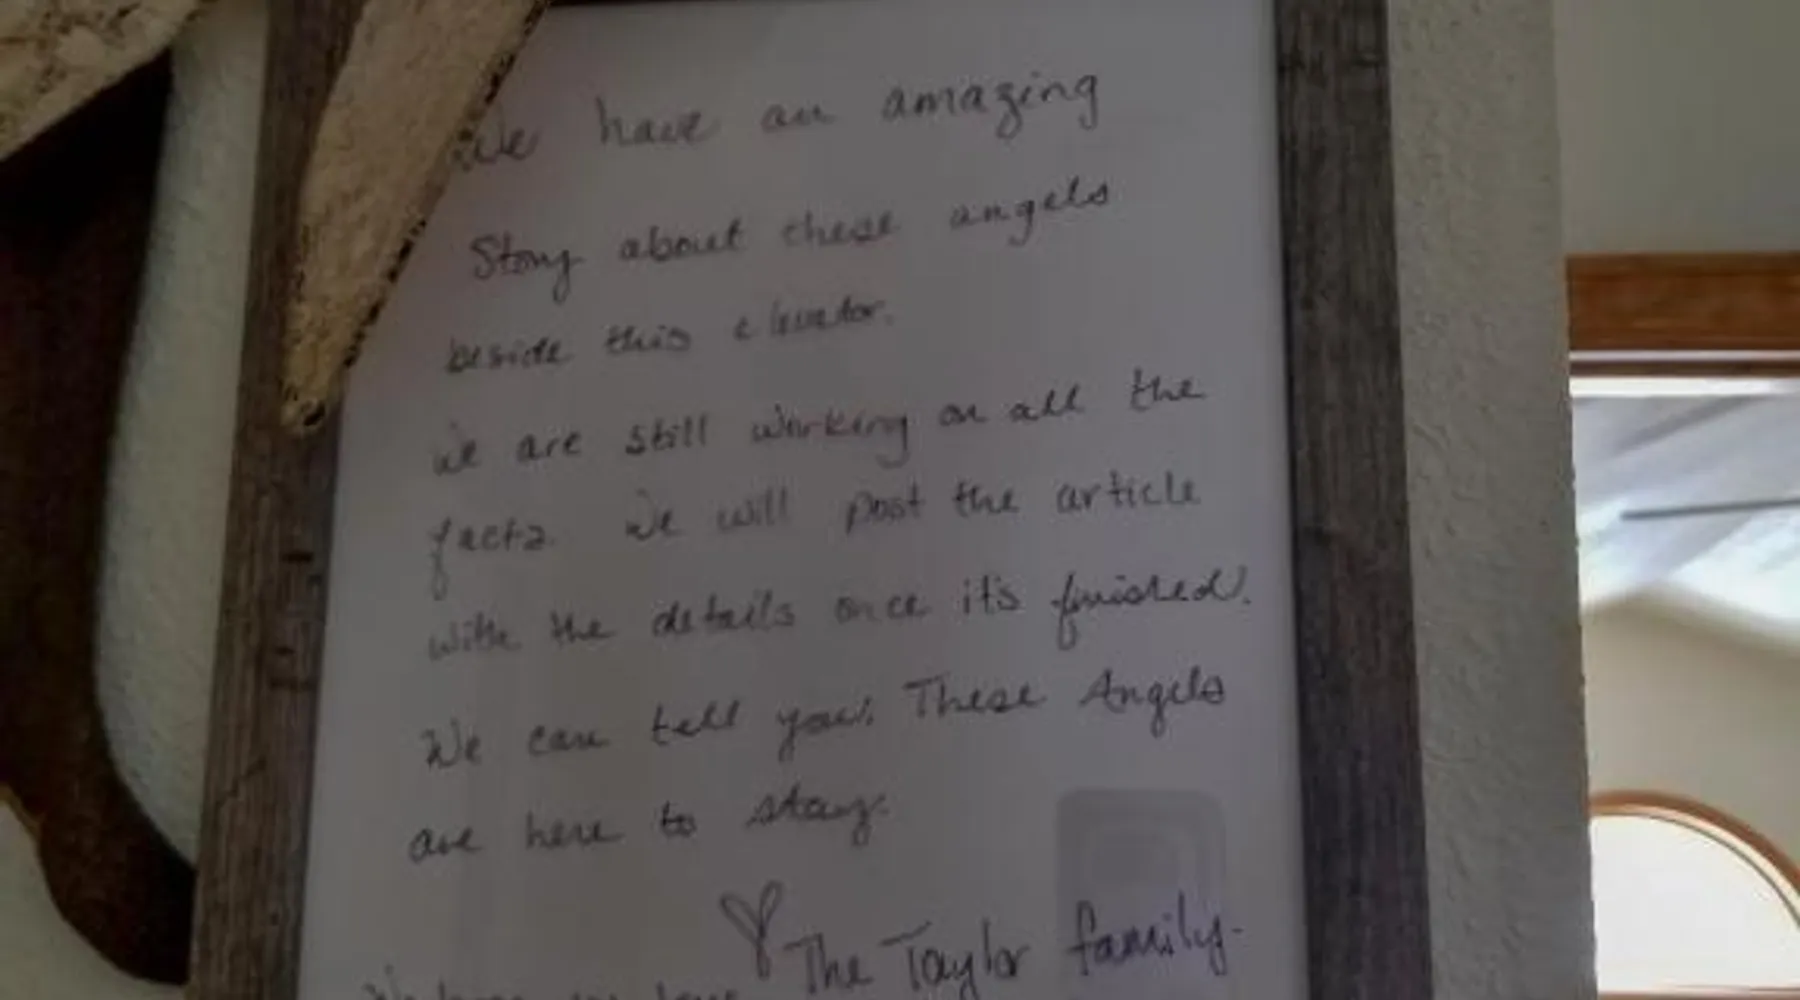 We have an amazing
Story about these angels
beside this elevator.
We are still working on all the
facts. We will post the article
with the details once it's finished.
We can tell you. These Angels
are here to stay.
The Taylor family.